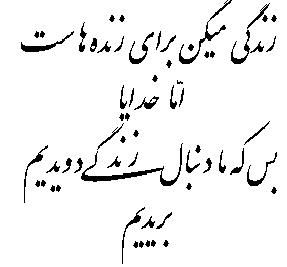 زندگی میگن برای زنده هاست
امّا خدایا
بس که ما دنبال زندگے دویدیم
بریدیم